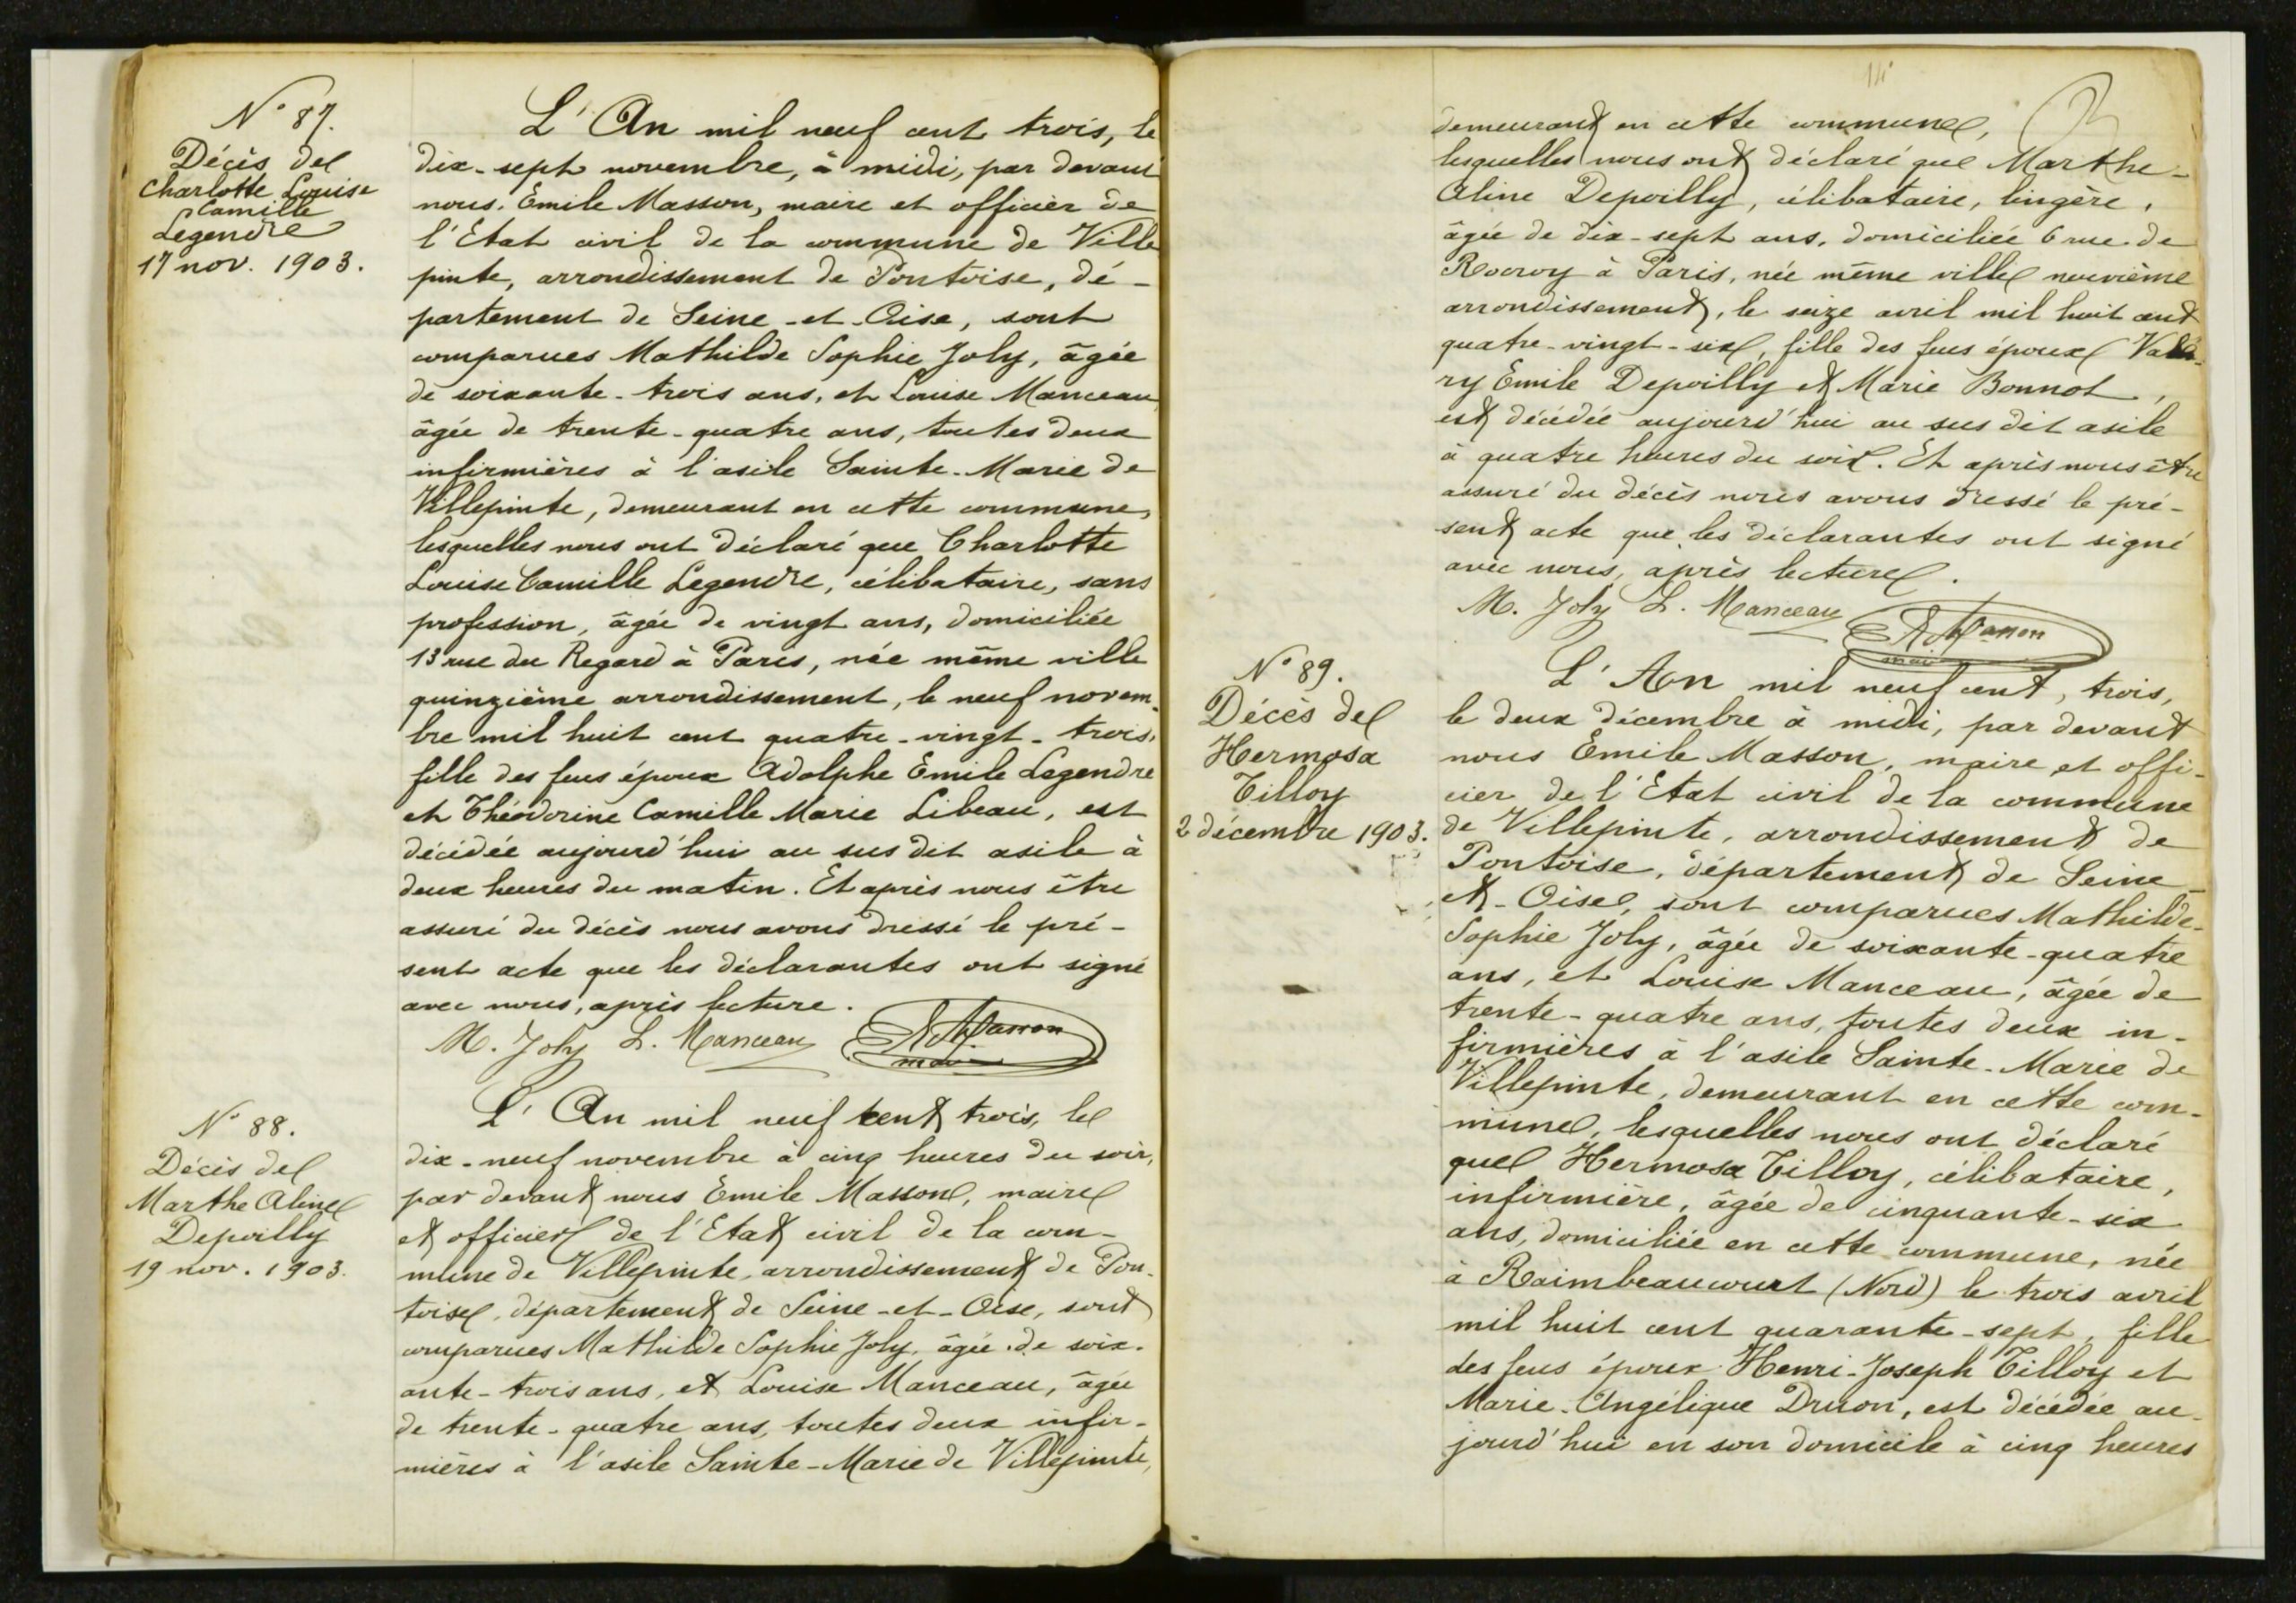 N° 87.
Décès de
Charlotte Louise
Camille
Legendre
17 nov. 1903.
L'An mil neuf cent trois, le
dix-sept novembre, à midi, par devant
nous, Emile Masson, maire et officier de
l'Etat civil de la commune de Ville
pinte, arrondissement de Pontoise, dé-
partement de Seine-et-Oise, sont
comparues Mathilde Sophie Joly, âgée
de soixante-trois ans, et Louise Manceau
âgée de trente-quatre ans, toutes deux
infirmières à l'asile Sainte-Marie de
Villepinte, demeurant en cette commune,
lesquelles nous ont déclaré que Charlotte
Louise Camille Legendre, célibataire, sans
profession, âgée de vingt ans, domiciliée
13 rue du Regard à Paris, née même ville
quinzième arrondissement, le neuf novem-
bre mil huit cent quatre-vingt-trois,
fille des feus époux Adolphe Emile Legendre
et Théodorine Camille Marie Libeau, est
décédée aujourd'hui au sus dit asile à
deux heures du matin. Et après nous être
assuré du décès nous avons dressé le pré-
sent acte que les déclarantes ont signé
avec nous, après lecture.
M. Joly L. Manceau E Masson
maire
N° 88.
Décès de
Marthe Aline
Depoilly
19 nov. 1903.
L'An mil neuf cent trois, le
dix-neuf novembre à cinq heures du soir,
par devant nous Emile Masson, maire
et officier de l'Etat civil de la com-
mune de Villepinte, arrondissement de Pon-
toise, département de Seine-et-Oise, sont
comparues Mathilde Sophie Joly, âgée de soix-
ante-trois ans, et Louise Manceau, âgée
de trente-quatre ans, toutes deux infir-
mières à l'asile Sainte-Marie de Villepinte,
14
demeurant en cette commune,
lesquelles nous ont déclaré que Marthe-
Aline Depoilly, célibataire, lingère,
âgée de dix-sept ans, domiciliée 6 rue de
Rocroy à Paris, née même ville neuvième
arrondissement, le seize avril mil huit cent
quatre-vingt-six, fille des feus époux Valé-
ry Emile Depoilly et Marie Bonnot,
est décédée aujourd'hui au sus dit asile
à quatre heures du soir. Et après nous être
assuré du décès nous avons dressé le pré-
sent acte que les déclarantes ont signé
avec nous, après lecture.
M. Joly L. Manceau E Masson
maire
N° 89.
Décès de
Hermosa
Tilloy
2 décembre 1903.
L'An mil neuf cent, trois,
le deux décembre à midi, par devant
nous Emile Masson, maire et offi-
cier de l'Etat civil de la commune
de Villepinte, arrondissement de
Pontoise, département de Seine-
et-Oise, sont comparues Mathilde-
Sophie Joly, âgée de soixante-quatre
ans, et Louise Manceau, âgée de
trente-quatre ans, toutes deux in-
firmières à l'asile Sainte-Marie de
Villepinte, demeurant en cette com-
mune, lesquelles nous ont déclaré
que Hermosa Tilloy, célibataire,
infirmière, âgée de cinquante-six
ans, domiciliée en cette commune, née
à Raimbeaucourt (Nord) le trois avril
mil huit cent quarante-sept, fille
des feus époux Henri-Joseph Tilloy et
Marie-Angélique Druon, est décédée au-
jourd'hui en son domicile à cinq heures